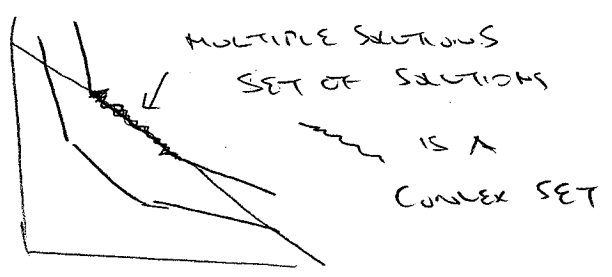 MULTIPLE SOLUTIONS
SET OF SOLUTIONS
IS A
CONVEX SET